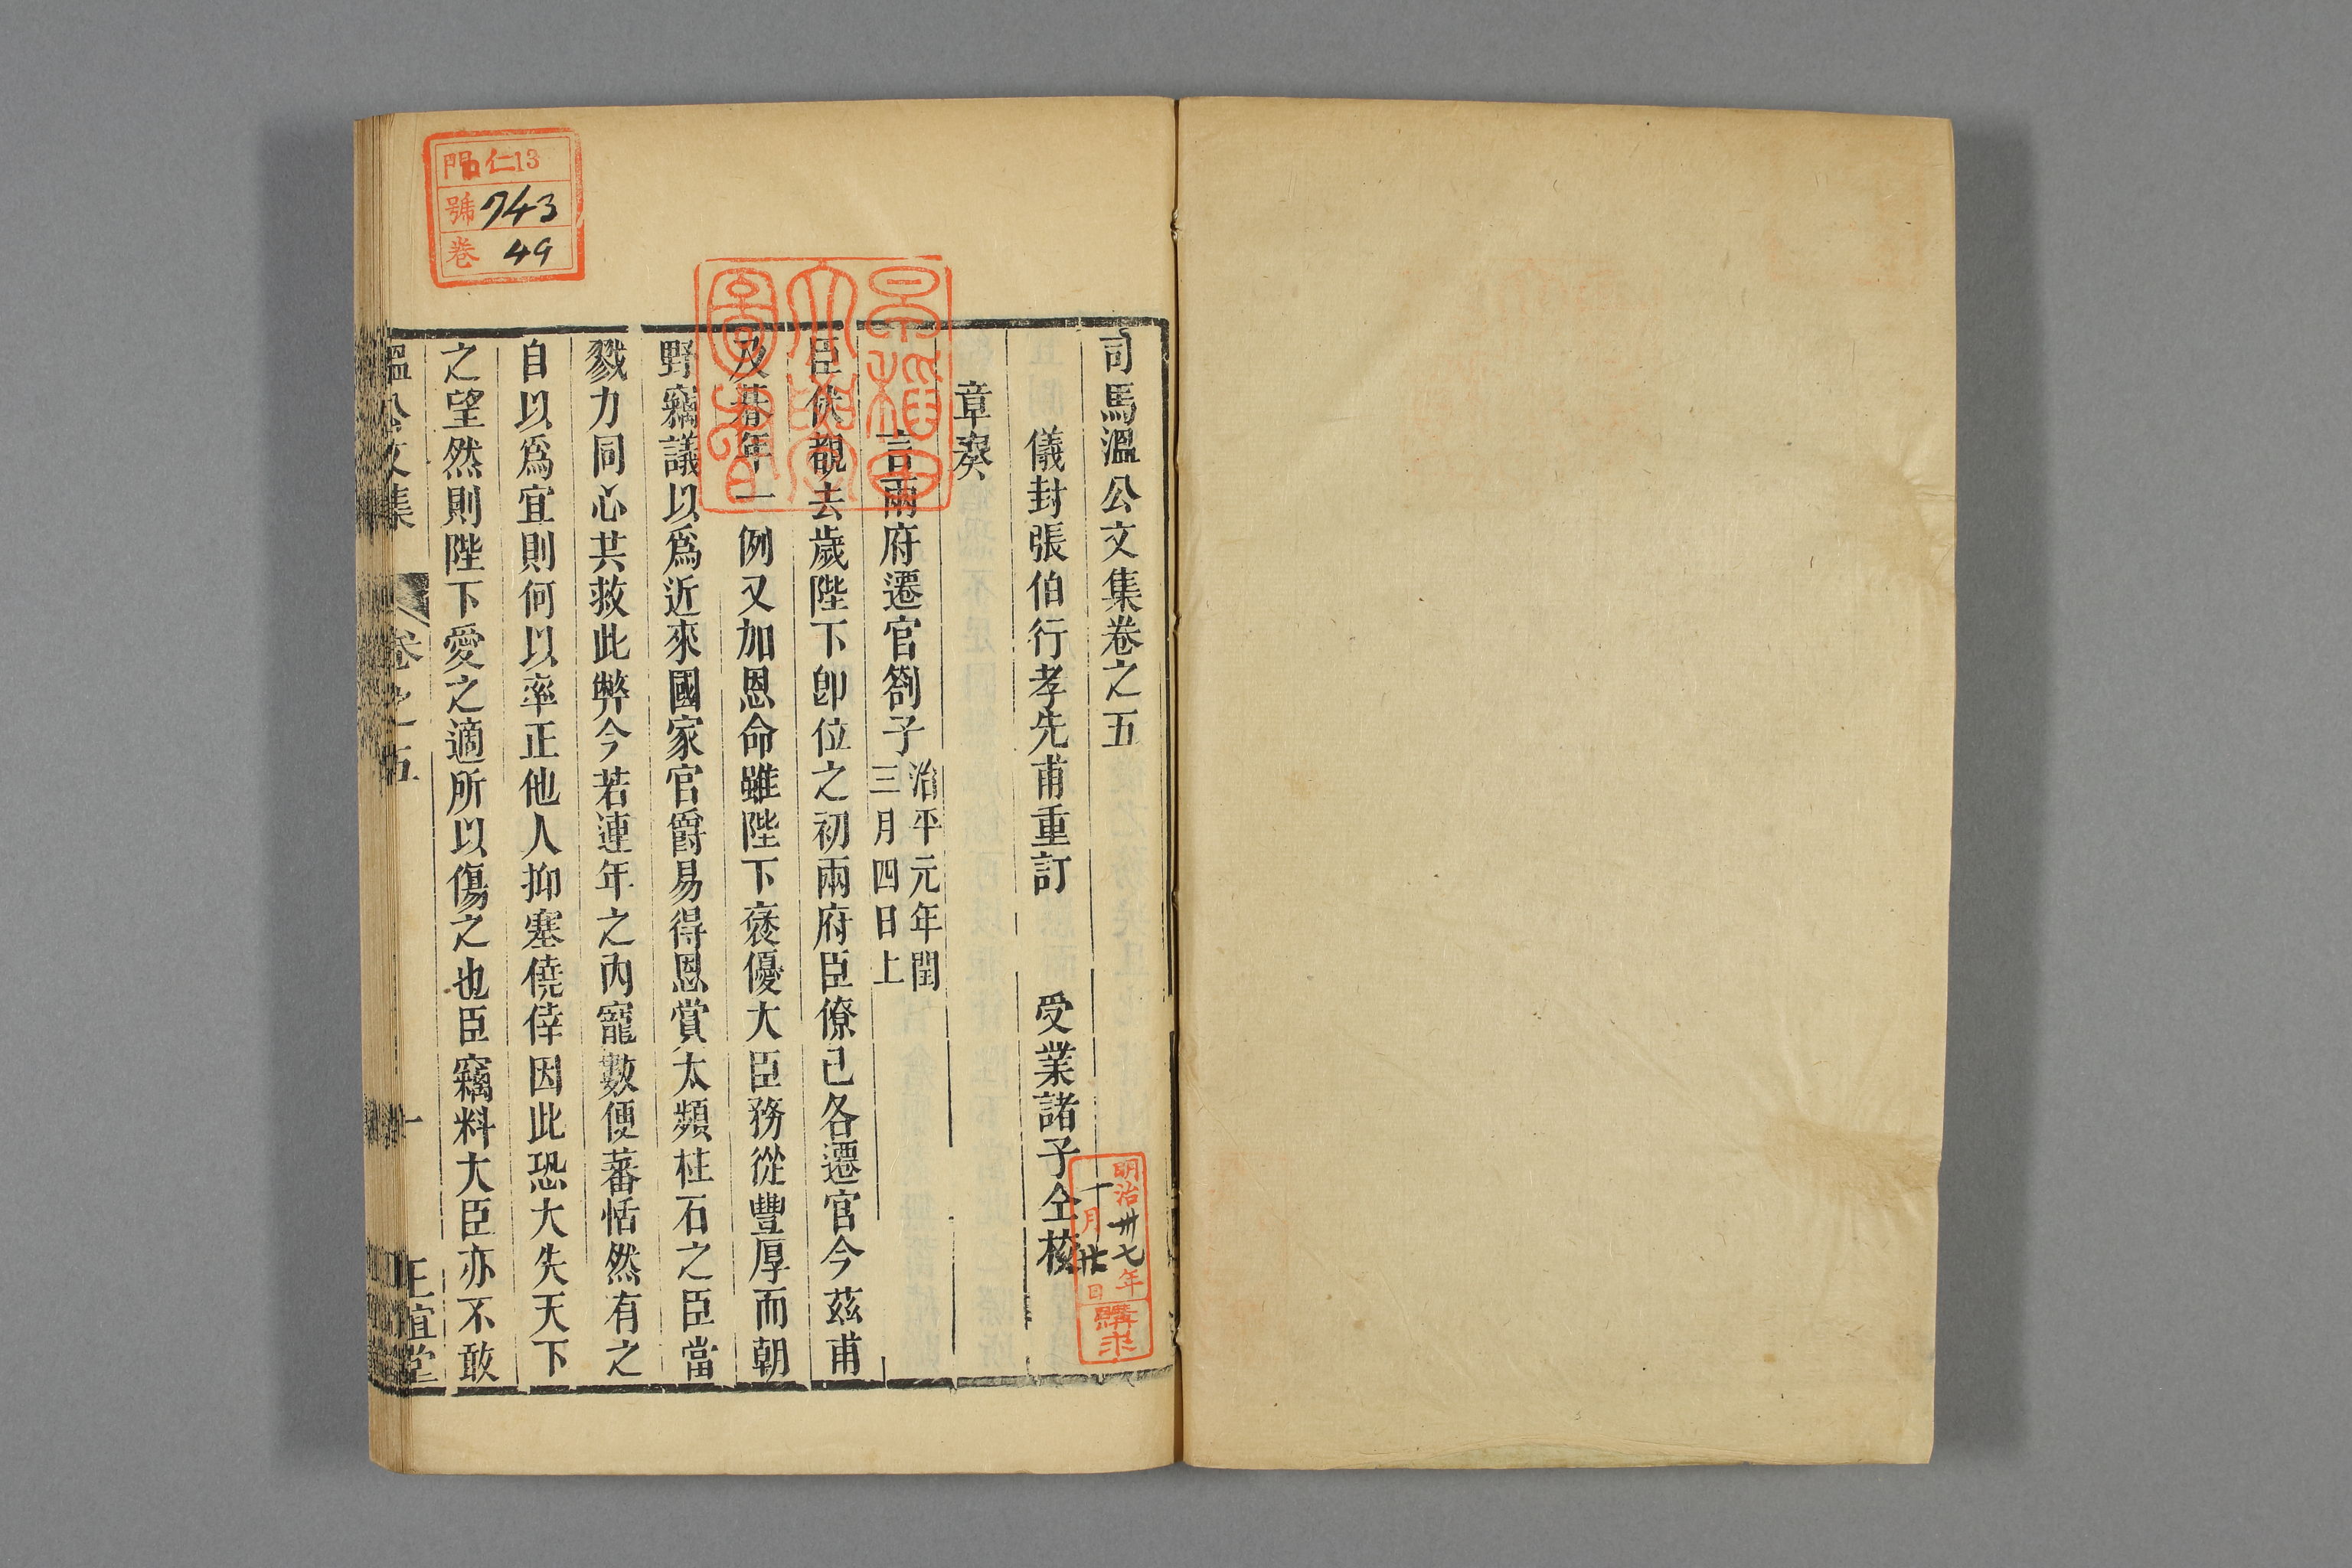 司馬溫公文集卷之五
儀封張伯行孝先甫重訂 受業諸子仝校
章奏
言兩府遷官劄子 治平元年閏三月四日上
臣伏覩去歲陛下卽位之初兩府臣僚已各遷官今茲甫
及朞年一例又加恩命雖陛下褒優大臣務從豐厚而朝
野竊議以爲近來國家官爵易得恩賞太頻柱石之臣當
戮力同心共救此弊今若連年之內寵數便蕃恬然有之
自以爲宜則何以率正他人抑塞僥倖因此恐大失天下
之望然則陛下愛之適所以傷之也臣竊料大臣亦不敢
溫公文集 卷之五 一 正誼堂
門 仁13
號 743
卷 49
早稻田大學圖書
明治卅七年
十月廿日
購求